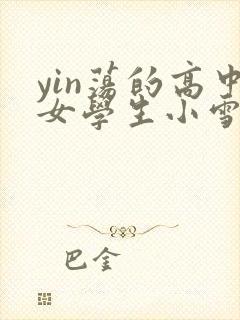 yin蕩的高中
女學生小雪
巴金